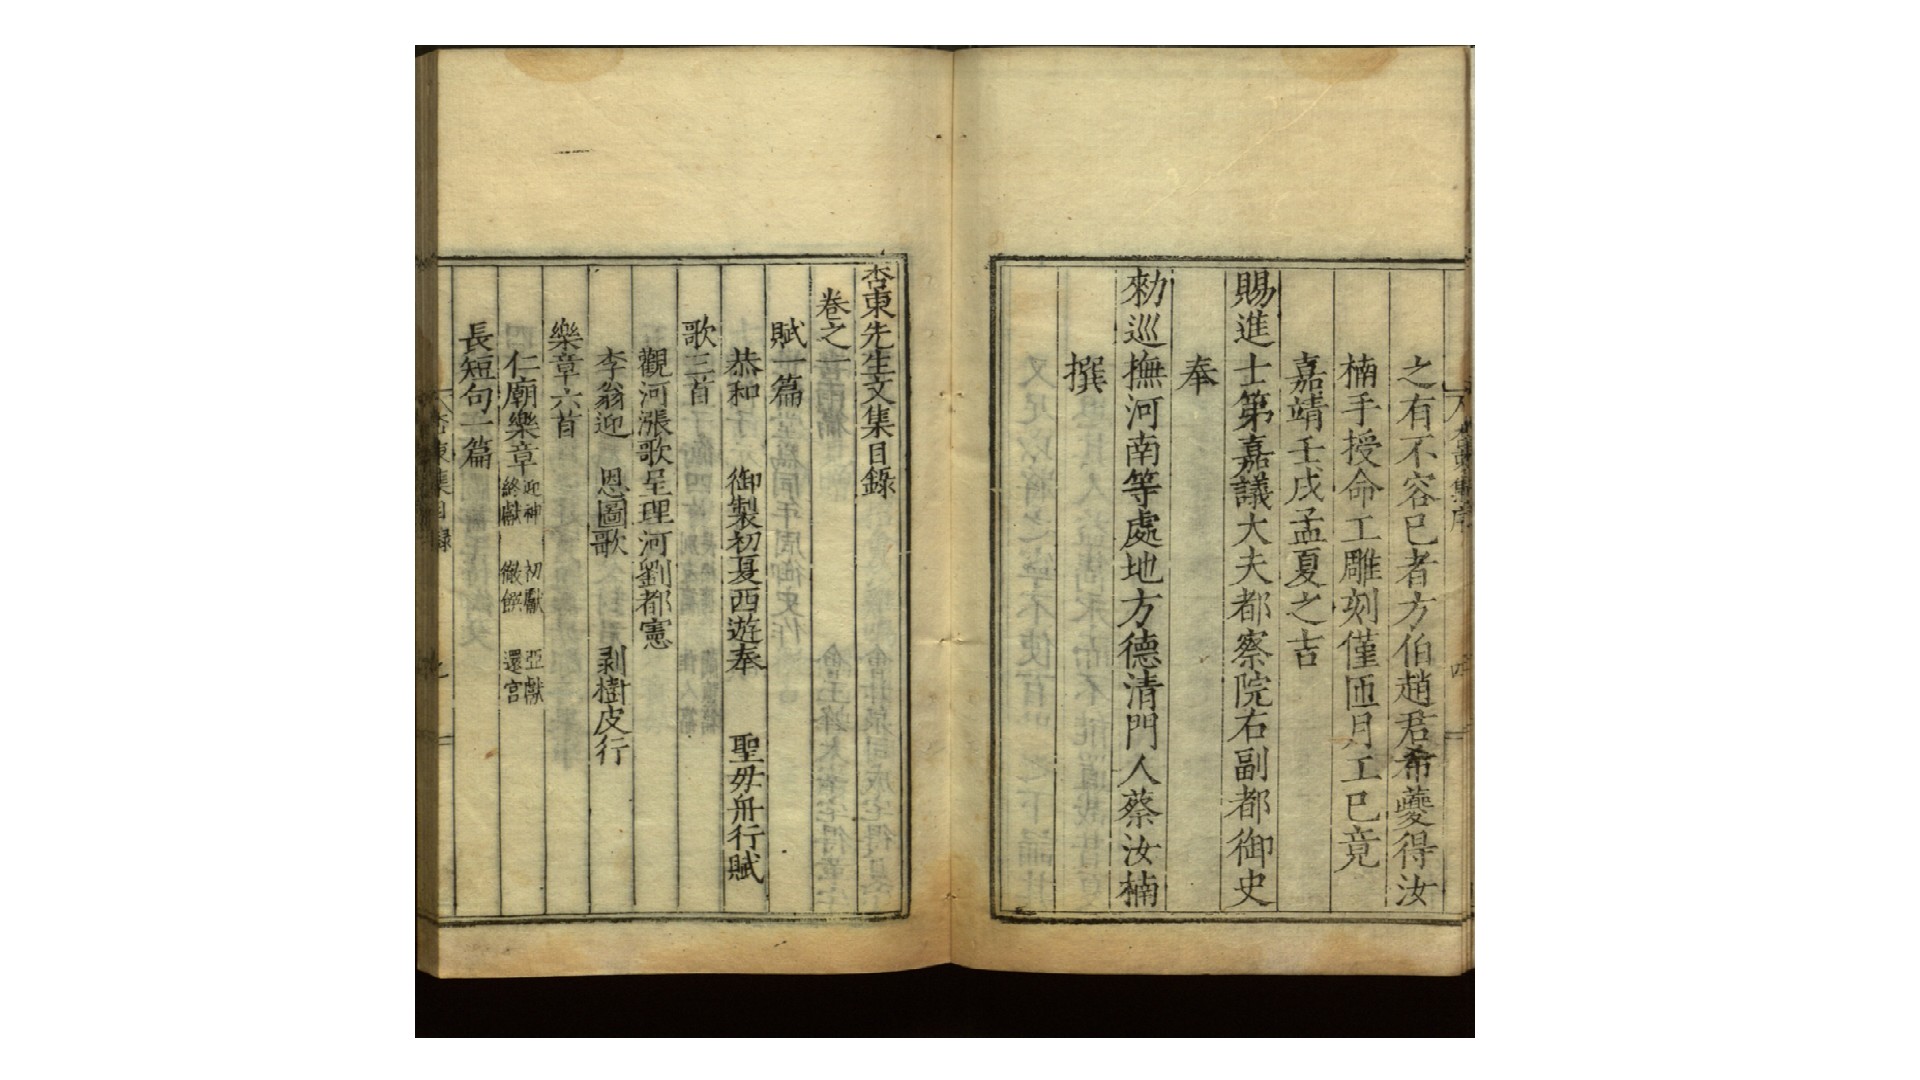 之有不容已者方伯趙君希夔得汝
楠手授命工雕刻僅匝月工已竟
嘉靖壬戌孟夏之吉
賜進士第嘉議大夫都察院右副都御史
奉
勑巡撫河南等處地方德清門人蔡汝楠
撰
杏東先生文集目錄
卷之一
賦一篇
恭和 御製初夏西遊奉 聖母舟行賦
歌三首
觀河漲歌呈理河劉都憲
李翁迎 恩圖歌 剥樹皮行
樂章六首
仁廟樂章 迎神 初獻 亞獻 終獻 徹饌 還宮
長短句一篇
杏東集目錄